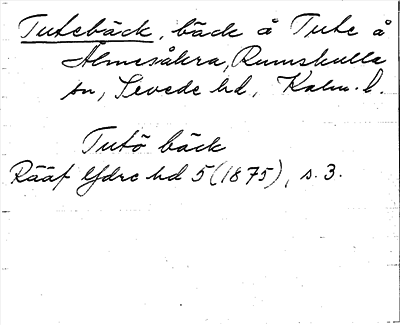 Tutebäck, bäck å Tute å
Almesåkra, Rumskulla
sn, Sevede hd, Kalm. l.
Tutö bäck
Rääf Ydre hd 5 (1875), s. 3.